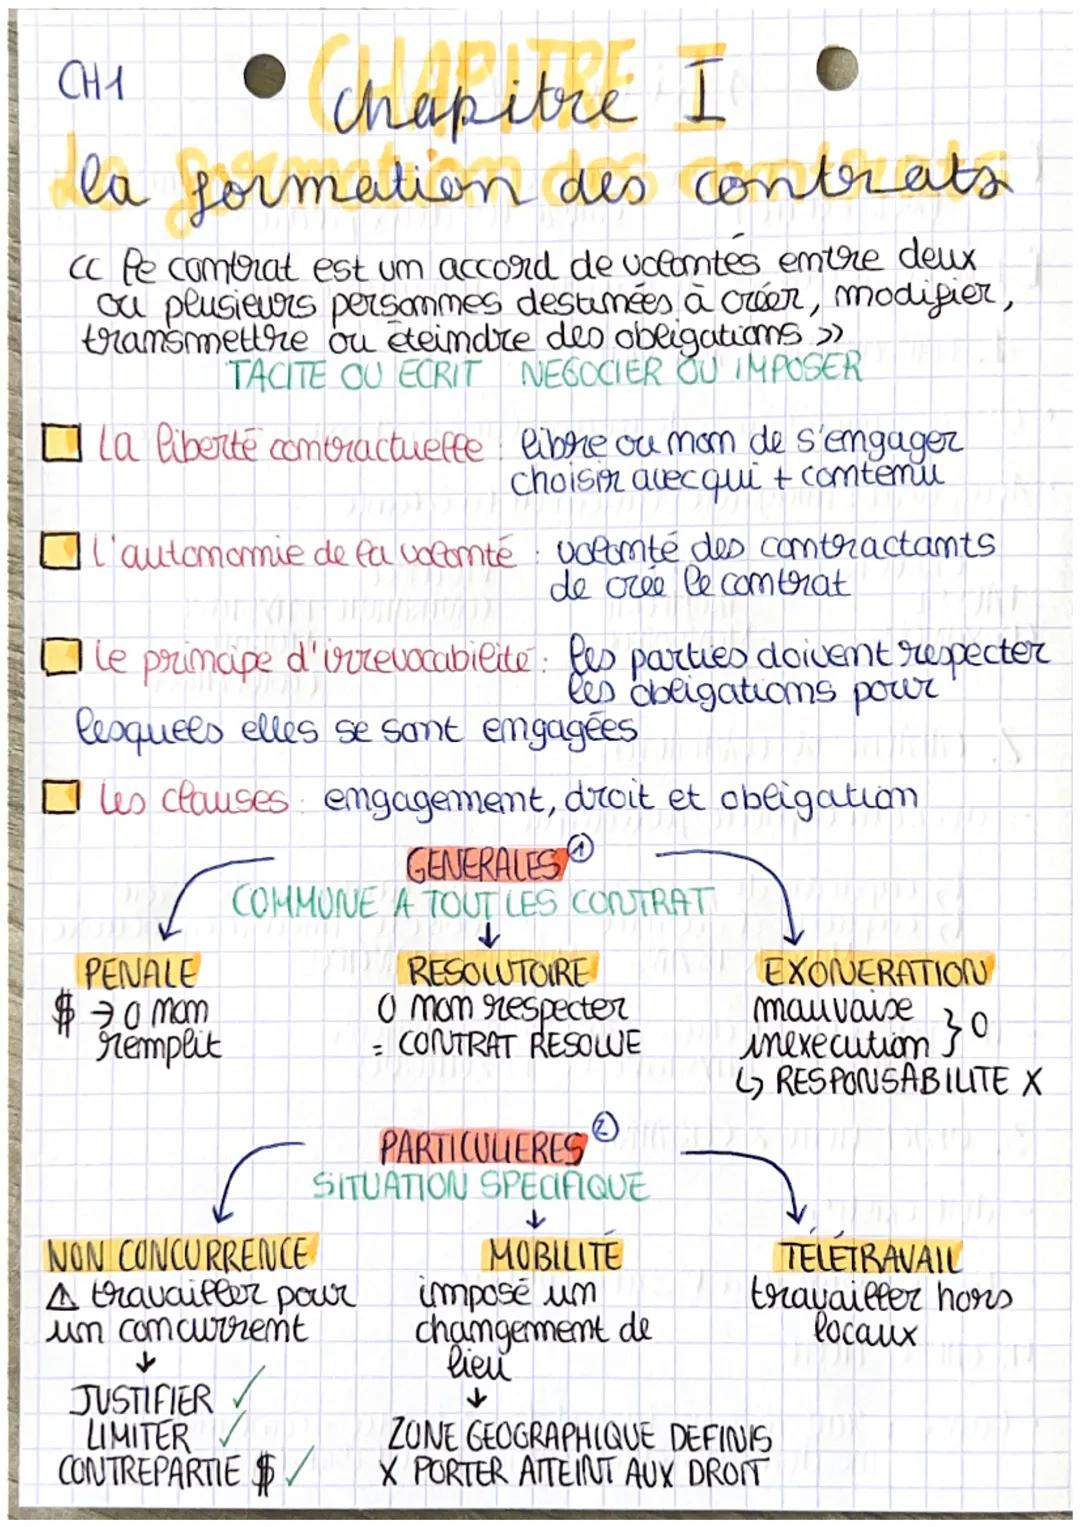 CH1
CHAPITRE I
chapitre I
la formation des contrats
<< le contrat est un accord de volontés entre deux
ou plusieurs personnes destinées à créer, modifier,
transmettre ou éteindre des obligations >>
TACITE OU ECRIT NEGOCIER OU IMPOSER
La liberté contractuelle : libre ou non de s'engager
choisir avec qui + contenu
L'autonomie de la volonté : volonté des contractants
de créé le contrat
Le principe d'irrevocabilité : les parties doivent respecter
les obligations pour
lesquels elles se sont engagées
Les clauses : engagement, droit et obligation
GENERALES 1
COMMUNE A TOUT LES CONTRAT
PENALE RESOLUTOIRE EXONERATION
$ → O non O non respecter mauvaise
remplit = CONTRAT RESOLUE inexecution } O
↳ RESPONSABILITE X
PARTICULIERES 2
SITUATION SPECIFIQUE
NON CONCURRENCE MOBILITÉ TÉLÉTRAVAIL
⚠ travailler pour imposé un travailler hors
un concurrent changement de locaux
lieu
JUSTIFIER ✓
LIMITER ✓ ZONE GEOGRAPHIQUE DEFINIS
CONTREPARTIE $ ✓ X PORTER ATTEINT AUX DROIT